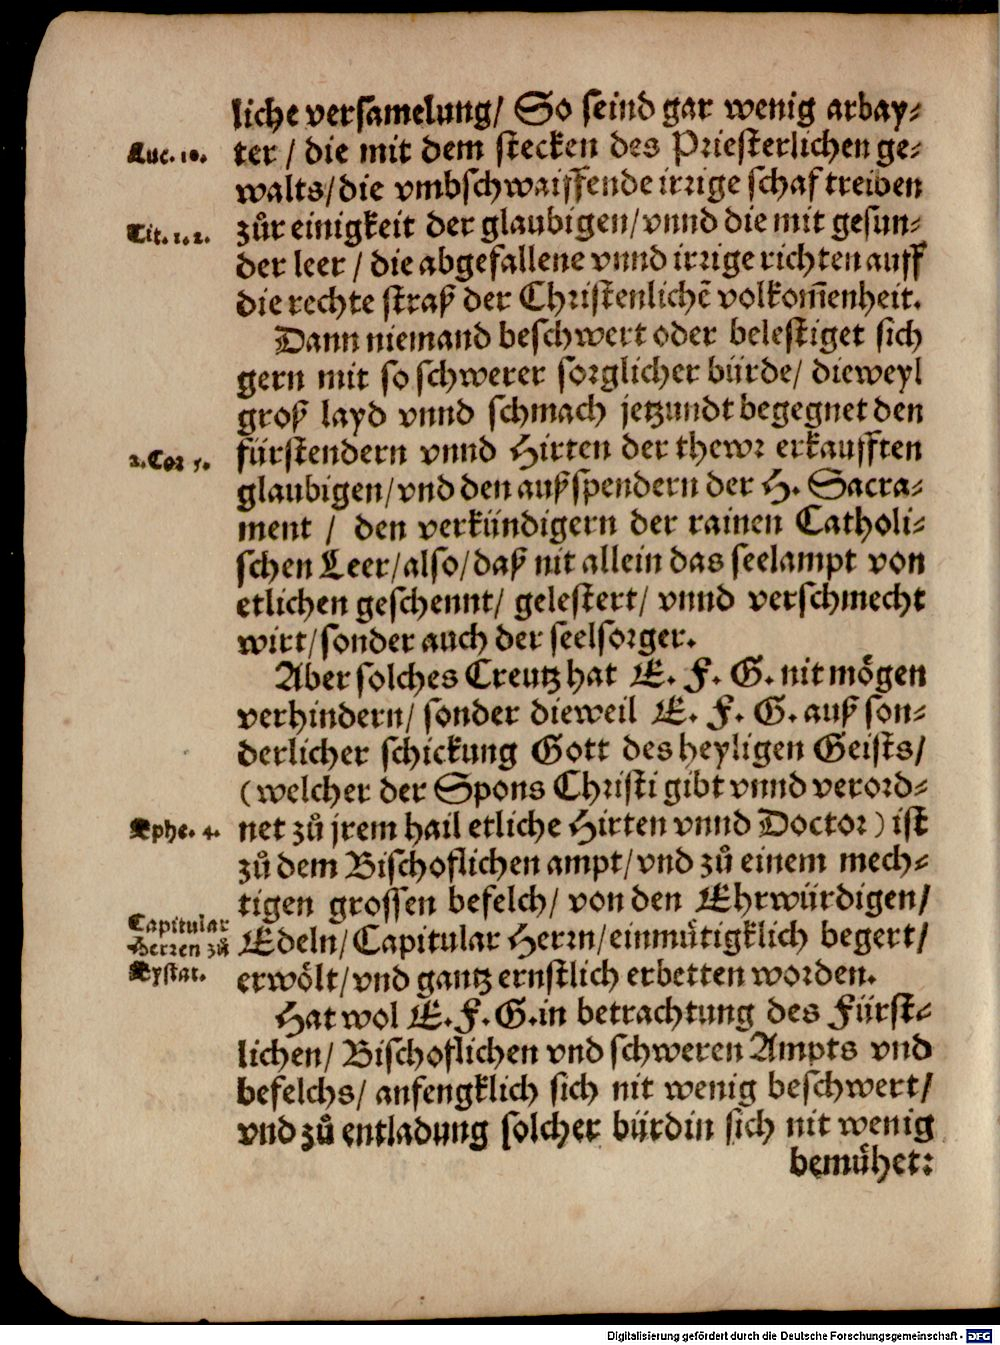 liche versamelung/ So seind gar wenig arbay⸗
Luc. 10. ter / die mit dem stecken des Priesterlichen ge⸗
walts/die vmbschwaiffende irrige schaf treiben
Tit. 1. 2. zůr einigkeit der glaubigen/vnnd die mit gesun⸗
der leer / die abgefallene vnnd irrige richten auff
die rechte straß der Christenlichẽ volkom̃enheit.
Dann niemand beschwert oder belestiget sich
gern mit so schwerer sorglicher bürde/ dieweyl
groß layd vnnd schmach jetzundt begegnet den
2. Cor 5. fürstendern vnnd Hirten der thewr erkaufften
glaubigen/vnd den außspendern der H. Sacra⸗
ment / den verkündigern der rainen Catholi⸗
schen Leer/also/daß nit allein das seelampt von
etlichen geschennt/ gelestert/ vnnd verschmecht
wirt/sonder auch der seelsorger.
Aber solches Creutz hat E. F. G. nit mögen
verhindern/ sonder dieweil E. F. G. auß son⸗
derlicher schickung Gott des heyligen Geists/
(welcher der Spons Christi gibt vnnd verord⸗
Ephe. 4. net zů jrem hail etliche Hirten vnnd Doctor) ist
zů dem Bischoflichen ampt/vnd zů einem mech⸗
tigen grossen befelch/ von den Ehrwürdigen/
Capitular Herren zů Eystat. Edeln/Capitular Herrn/einmůtigklich begert/
erwölt/vnd gantz ernstlich erbetten worden.
Hat wol E. F. G. in betrachtung des Fürst⸗
lichen/ Bischoflichen vnd schweren Ampts vnd
befelchs/ anfengklich sich nit wenig beschwert/
vnd zů entladung solcher bürdin sich nit wenig
bemůhet:
Digitalisierung gefördert durch die Deutsche Forschungsgemeinschaft - DFG